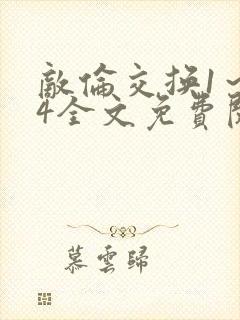 敵倫交换1~
4全文免費閱
慕雲歸